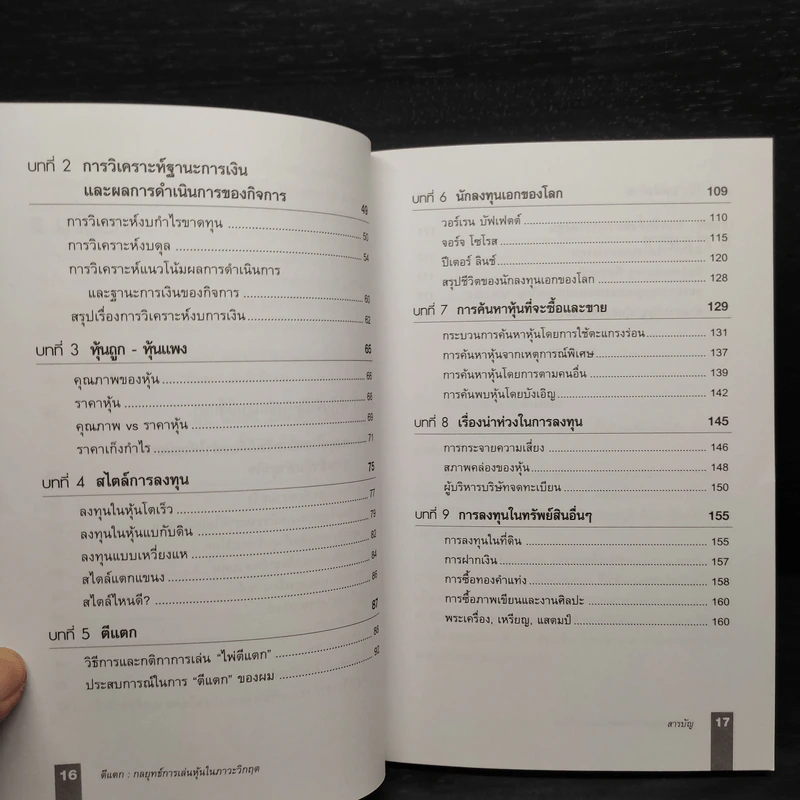 บทที่ 2 การวิเคราะห์ฐานะการเงิน
และผลการดำเนินการของกิจการ 49
การวิเคราะห์งบกำไรขาดทุน 50
การวิเคราะห์งบดุล 54
การวิเคราะห์แนวโน้มผลการดำเนินการ
และฐานะการเงินของกิจการ 60
สรุปเรื่องการวิเคราะห์งบการเงิน 62
บทที่ 3 หุ้นถูก - หุ้นแพง 65
คุณภาพของหุ้น 66
ราคาหุ้น 68
คุณภาพ vs ราคาหุ้น 69
ราคาเก็งกำไร 71
บทที่ 4 สไตล์การลงทุน 75
ลงทุนในหุ้นโตเร็ว 77
ลงทุนในหุ้นแบกับดิน 79
ลงทุนแบบเหวี่ยงแห 82
สไตล์แตกแขนง 84
สไตล์ไหนดี? 86
บทที่ 5 ตีแตก 87
วิธีการและกติกาการเล่น "ไพ่ตีแตก" 88
ประสบการณ์ในการ "ตีแตก" ของผม 92
16 ตีแตก : กลยุทธ์การเล่นหุ้นในภาวะวิกฤต
บทที่ 6 นักลงทุนเอกของโลก 109
วอร์เรน บัฟเฟตต์ 110
จอร์จ โซโรส 115
ปีเตอร์ ลินซ์ 120
สรุปชีวิตของนักลงทุนเอกของโลก 128
บทที่ 7 การค้นหาหุ้นที่จะซื้อและขาย 129
กระบวนการค้นหาหุ้นโดยการใช้ตะแกรงร่อน 131
การค้นหาหุ้นจากเหตุการณ์พิเศษ 137
การค้นหาหุ้นโดยการตามคนอื่น 139
การค้นพบหุ้นโดยบังเอิญ 142
บทที่ 8 เรื่องน่าห่วงในการลงทุน 145
การกระจายความเสี่ยง 146
สภาพคล่องของหุ้น 148
ผู้บริหารบริษัทจดทะเบียน 150
บทที่ 9 การลงทุนในทรัพย์สินอื่นๆ 155
การลงทุนในที่ดิน 155
การฝากเงิน 157
การซื้อทองคำแท่ง 158
การซื้อภาพเขียนและงานศิลปะ 160
พระเครื่อง, เหรียญ, แสตมป์ 160
สารบัญ 17